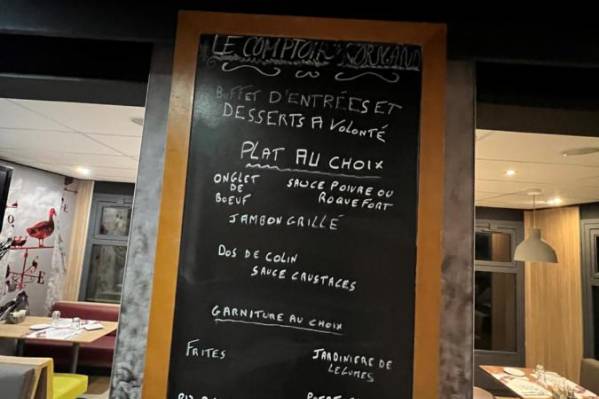 LE COMPTOIR NORMAND
BUFFET D'ENTRÉES ET
DESSERTS A VOLONTÉ
PLAT AU CHOIX
ONGLET DE BOEUF
SAUCE POIVRE OU ROQUEFORT
JAMBON GRILLÉ
DOS DE COLIN
SAUCE CRUSTACES
GARNITURE AU CHOIX
FRITES
JARDINIERE DE
LEGUMES